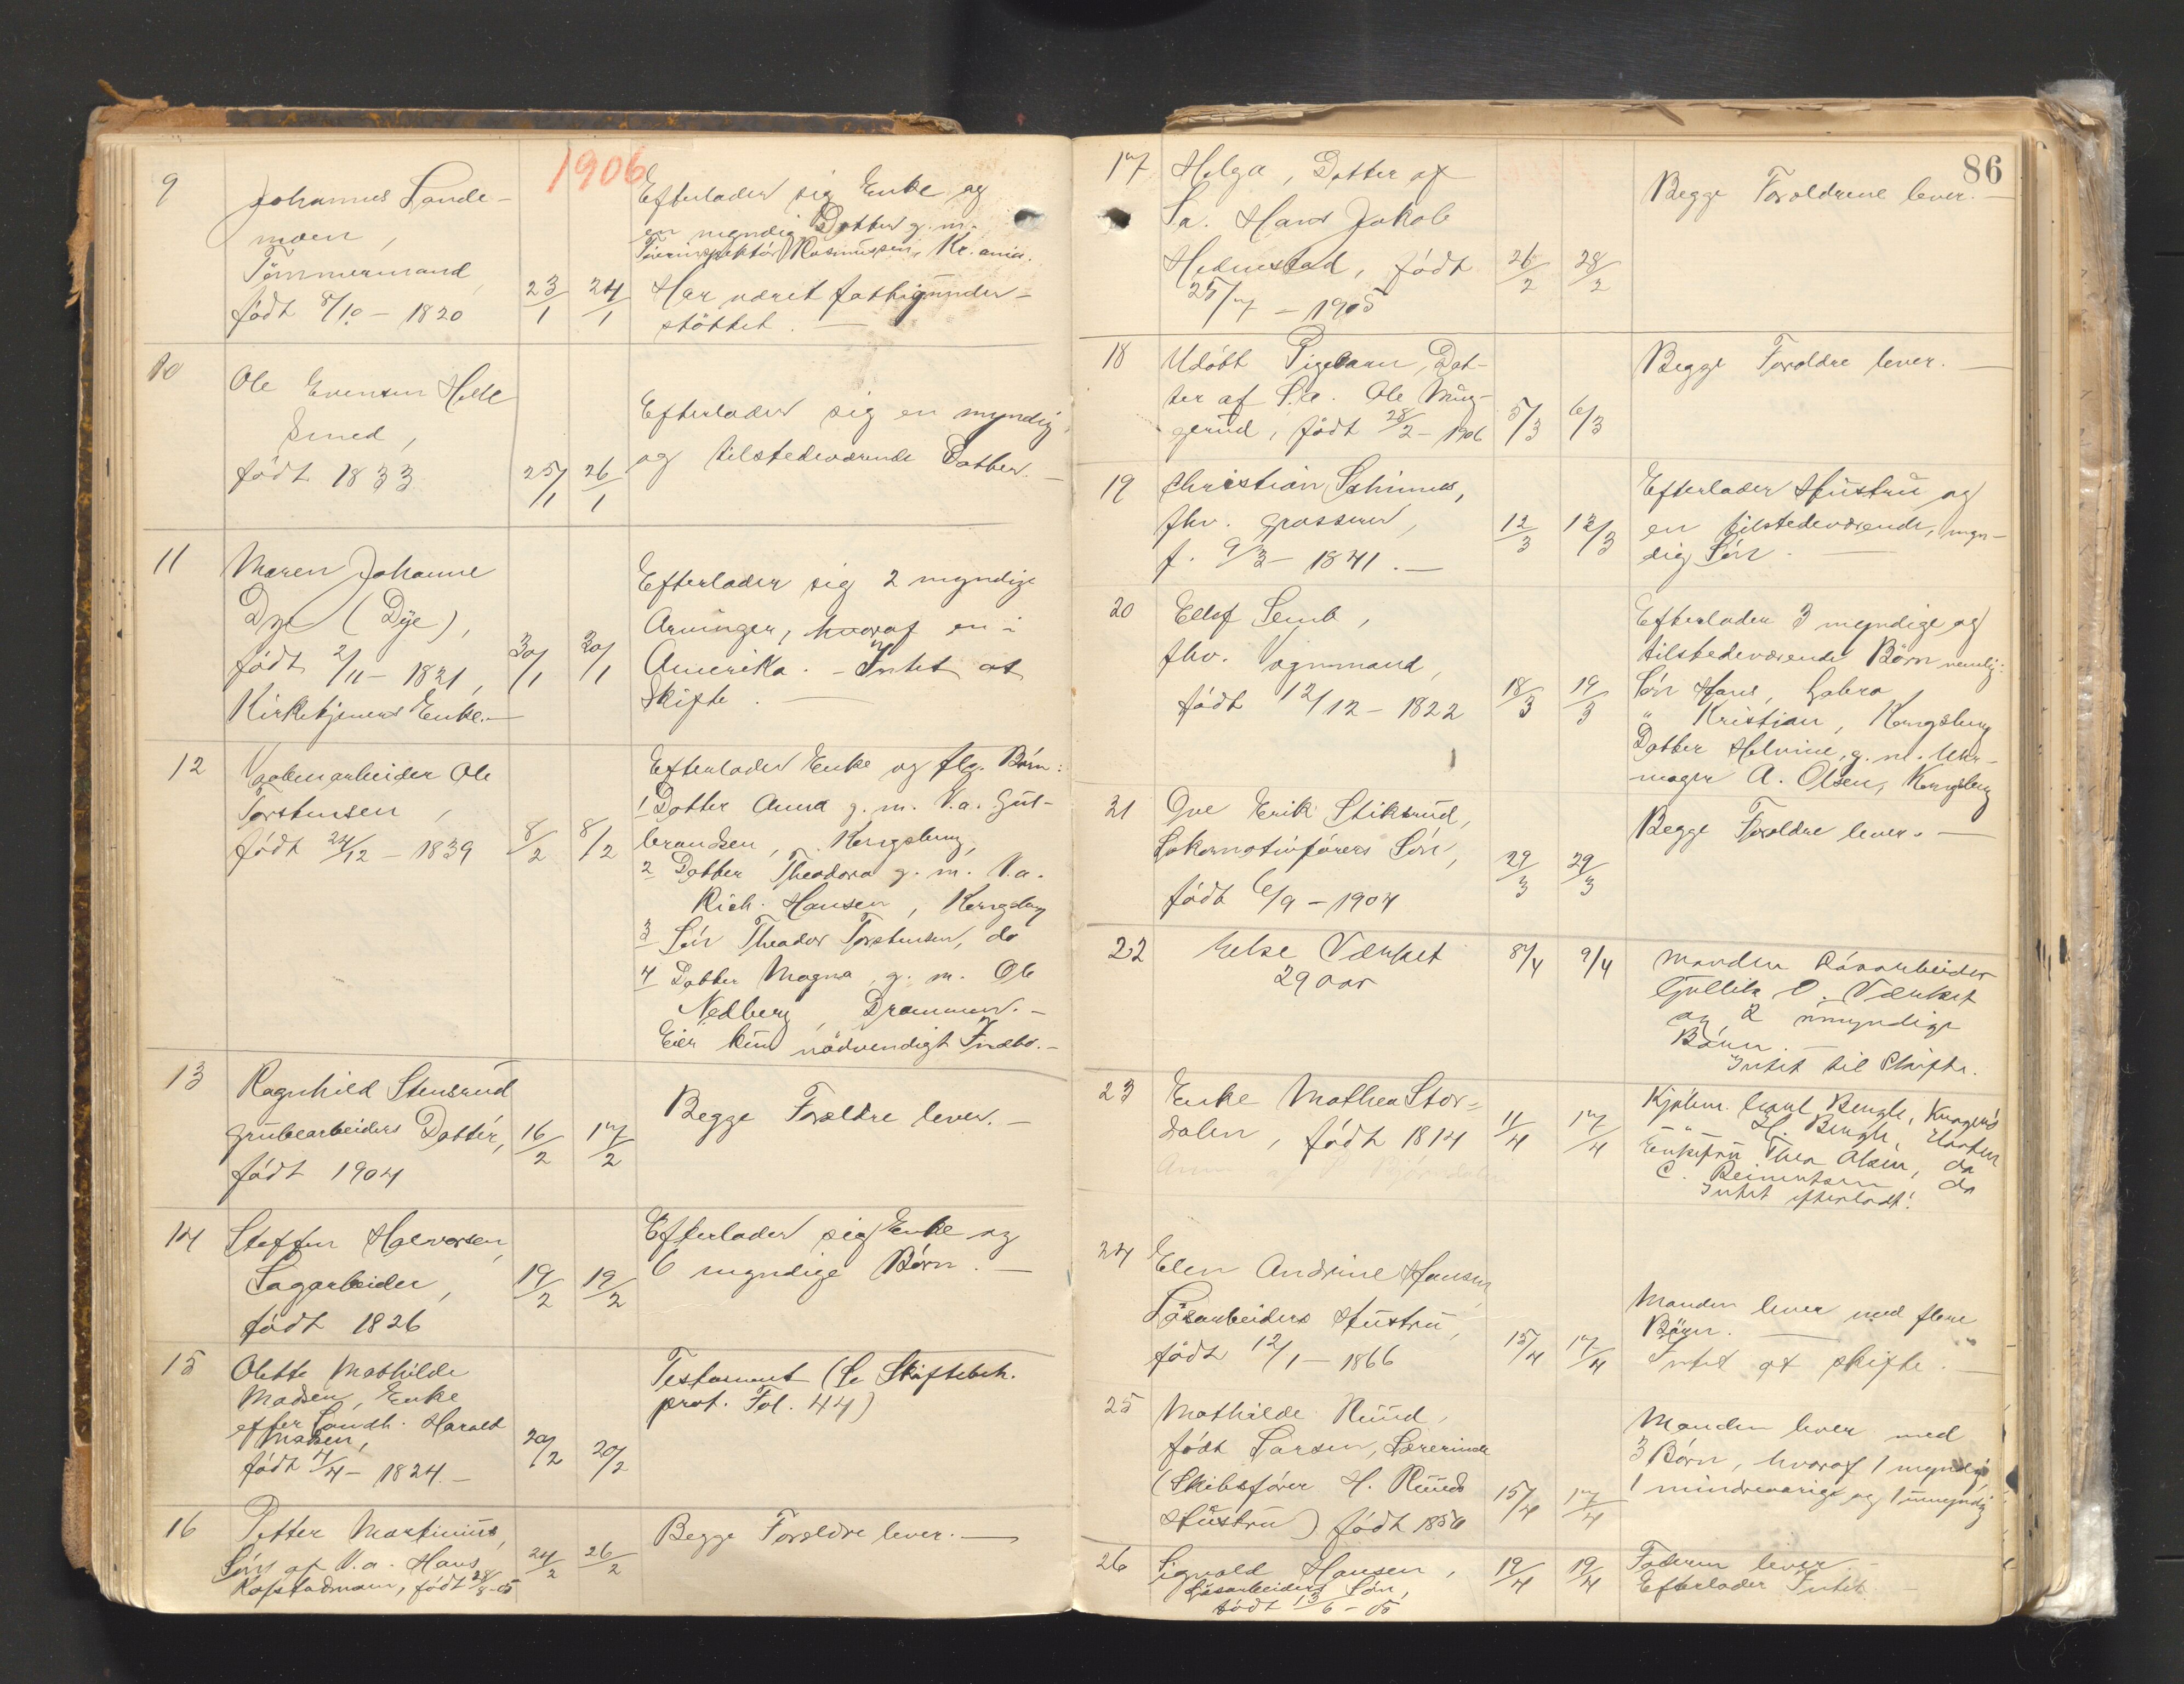 1906
9
Johannes Sande-
moen,
Tömmermand,
födt 8/10 – 1820
23/1
24/1
Efterlader sig Enke og
en myndig Datter g. m.
Rasmussen, Kr.ania.
Har været fattigunder-
støttet. —
10
Ole Evensen Helle
Smed,
födt 1833
25/1
26/1
Efterlader sig en myndig,
og tilstedeværende Datter. —
11
Maren Johanne
Dye (Dÿe),
födt 2/11 – 1821,
Kirketjeners Enke. —
30/1
30/1
Efterlader sig 2 myndige
Arvinger, hvoraf en i
Amerika. – Intet at
Skifte. —
12
Vaabenarbeider Ole
Torstensen,
födt 24/12 – 1839
8/2
8/2
Efterlader Enke og flg. Börn:
1 Datter Anna g. m. V.a. Gul-
brandsen, Kongsberg,
2 Datter Theodora g. m. V.a.
Rich. Hansen, Kongsberg
3 Sön Theodor Torstensen, do
4 Datter Magna g. m. Ole
Nedberg, Drammen. –
Eier kun nödvendigt Indbo. –
13
Ragnhild Stensrud
Grubearbeiders Datter,
födt 1904
16/2
17/2
Begge Forældre lever. –
14
Steffen Halvorsen,
Sagarbeider,
födt 1826
19/2
19/2
Efterlader sig Enke og
6 myndige Börn. —
15
Olette Mathilde
Madsen, Enke
efter Landh. Harald
Madsen,
födt 4/4 – 1824. –
20/2
20/2
Testament (Se Skiftebeh.
prot. Fol. 44)
16
Petter Martinius,
Sön af V.a. Hans
Kopstadmoen, födt 28/8-05
24/2
26/2
Begge Forældre lever. —
86
17
Helga, Datter af
Sa. Hans Jakob
Hedenstad, födt
25/7 – 1905
26/2
28/2
Begge Forældrene lever. —
18
Udöbt Pigebarn, Dat-
ter af S.a. Ole Mug-
gerud, födt 28/2 – 1906
5/3
6/3
Begge Forældre lever. —
19
Christian Schinnes,
fhv. grosserer,
f. 9/3 – 1841. —
12/3
13/3
Efterlader Hustru og
en tilstedeværende, myn-
dig Sön. —
20
Ellef Semb,
fhv. Vognmand,
födt 12/12 – 1822
18/3
19/3
Efterlader 3 myndige og
tilstedeværende Börn nemlig:
Sön Hans, Labro
" Kristian, Kongsberg
Datter Helvine, g. m. Uhr-
mager A. Olsen, Kongsberg
21
Ove Erik Stiksrud,
Lokomotivförers Sön,
födt 6/9 – 1904
29/3
29/3
Begge Forældre lever. —
22
Else Værket
29 aar
8/4
9/4
Manden Løsarbeider
Gullik O. Værket
og 2 umyndige
Börn. —
Intet til Skifte.
23
Enke Mathea Stor-
dalen, födt 1814
11/4
17/4
Kjöbm. Carl Bergh,
H. Bergh, Horten
Enkefru Thea Olsen, do
C. Reinertsen do
Intet efterladt!
24
Elen Andrine Hansen,
Lösarbeiders Hustru,
födt 12/1 – 1866
15/4
17/4
Manden lever med flere
Börn. —
Intet at skifte. —
25
Mathilde Ruud,
födt Larsen, Lærerinde
(Skibsförer H. Ruuds
Hustru) födt 1856
15/4
17/4
Manden lever med
3 Börn, hvoraf 1 myndig,
1 mindreaarige og 1 umyndig
26
Signald Hansen,
Lösarbeiders Sön,
födt 13/6 – 05
19/4
19/4
Faderen lever. –
Efterlader Intet. —